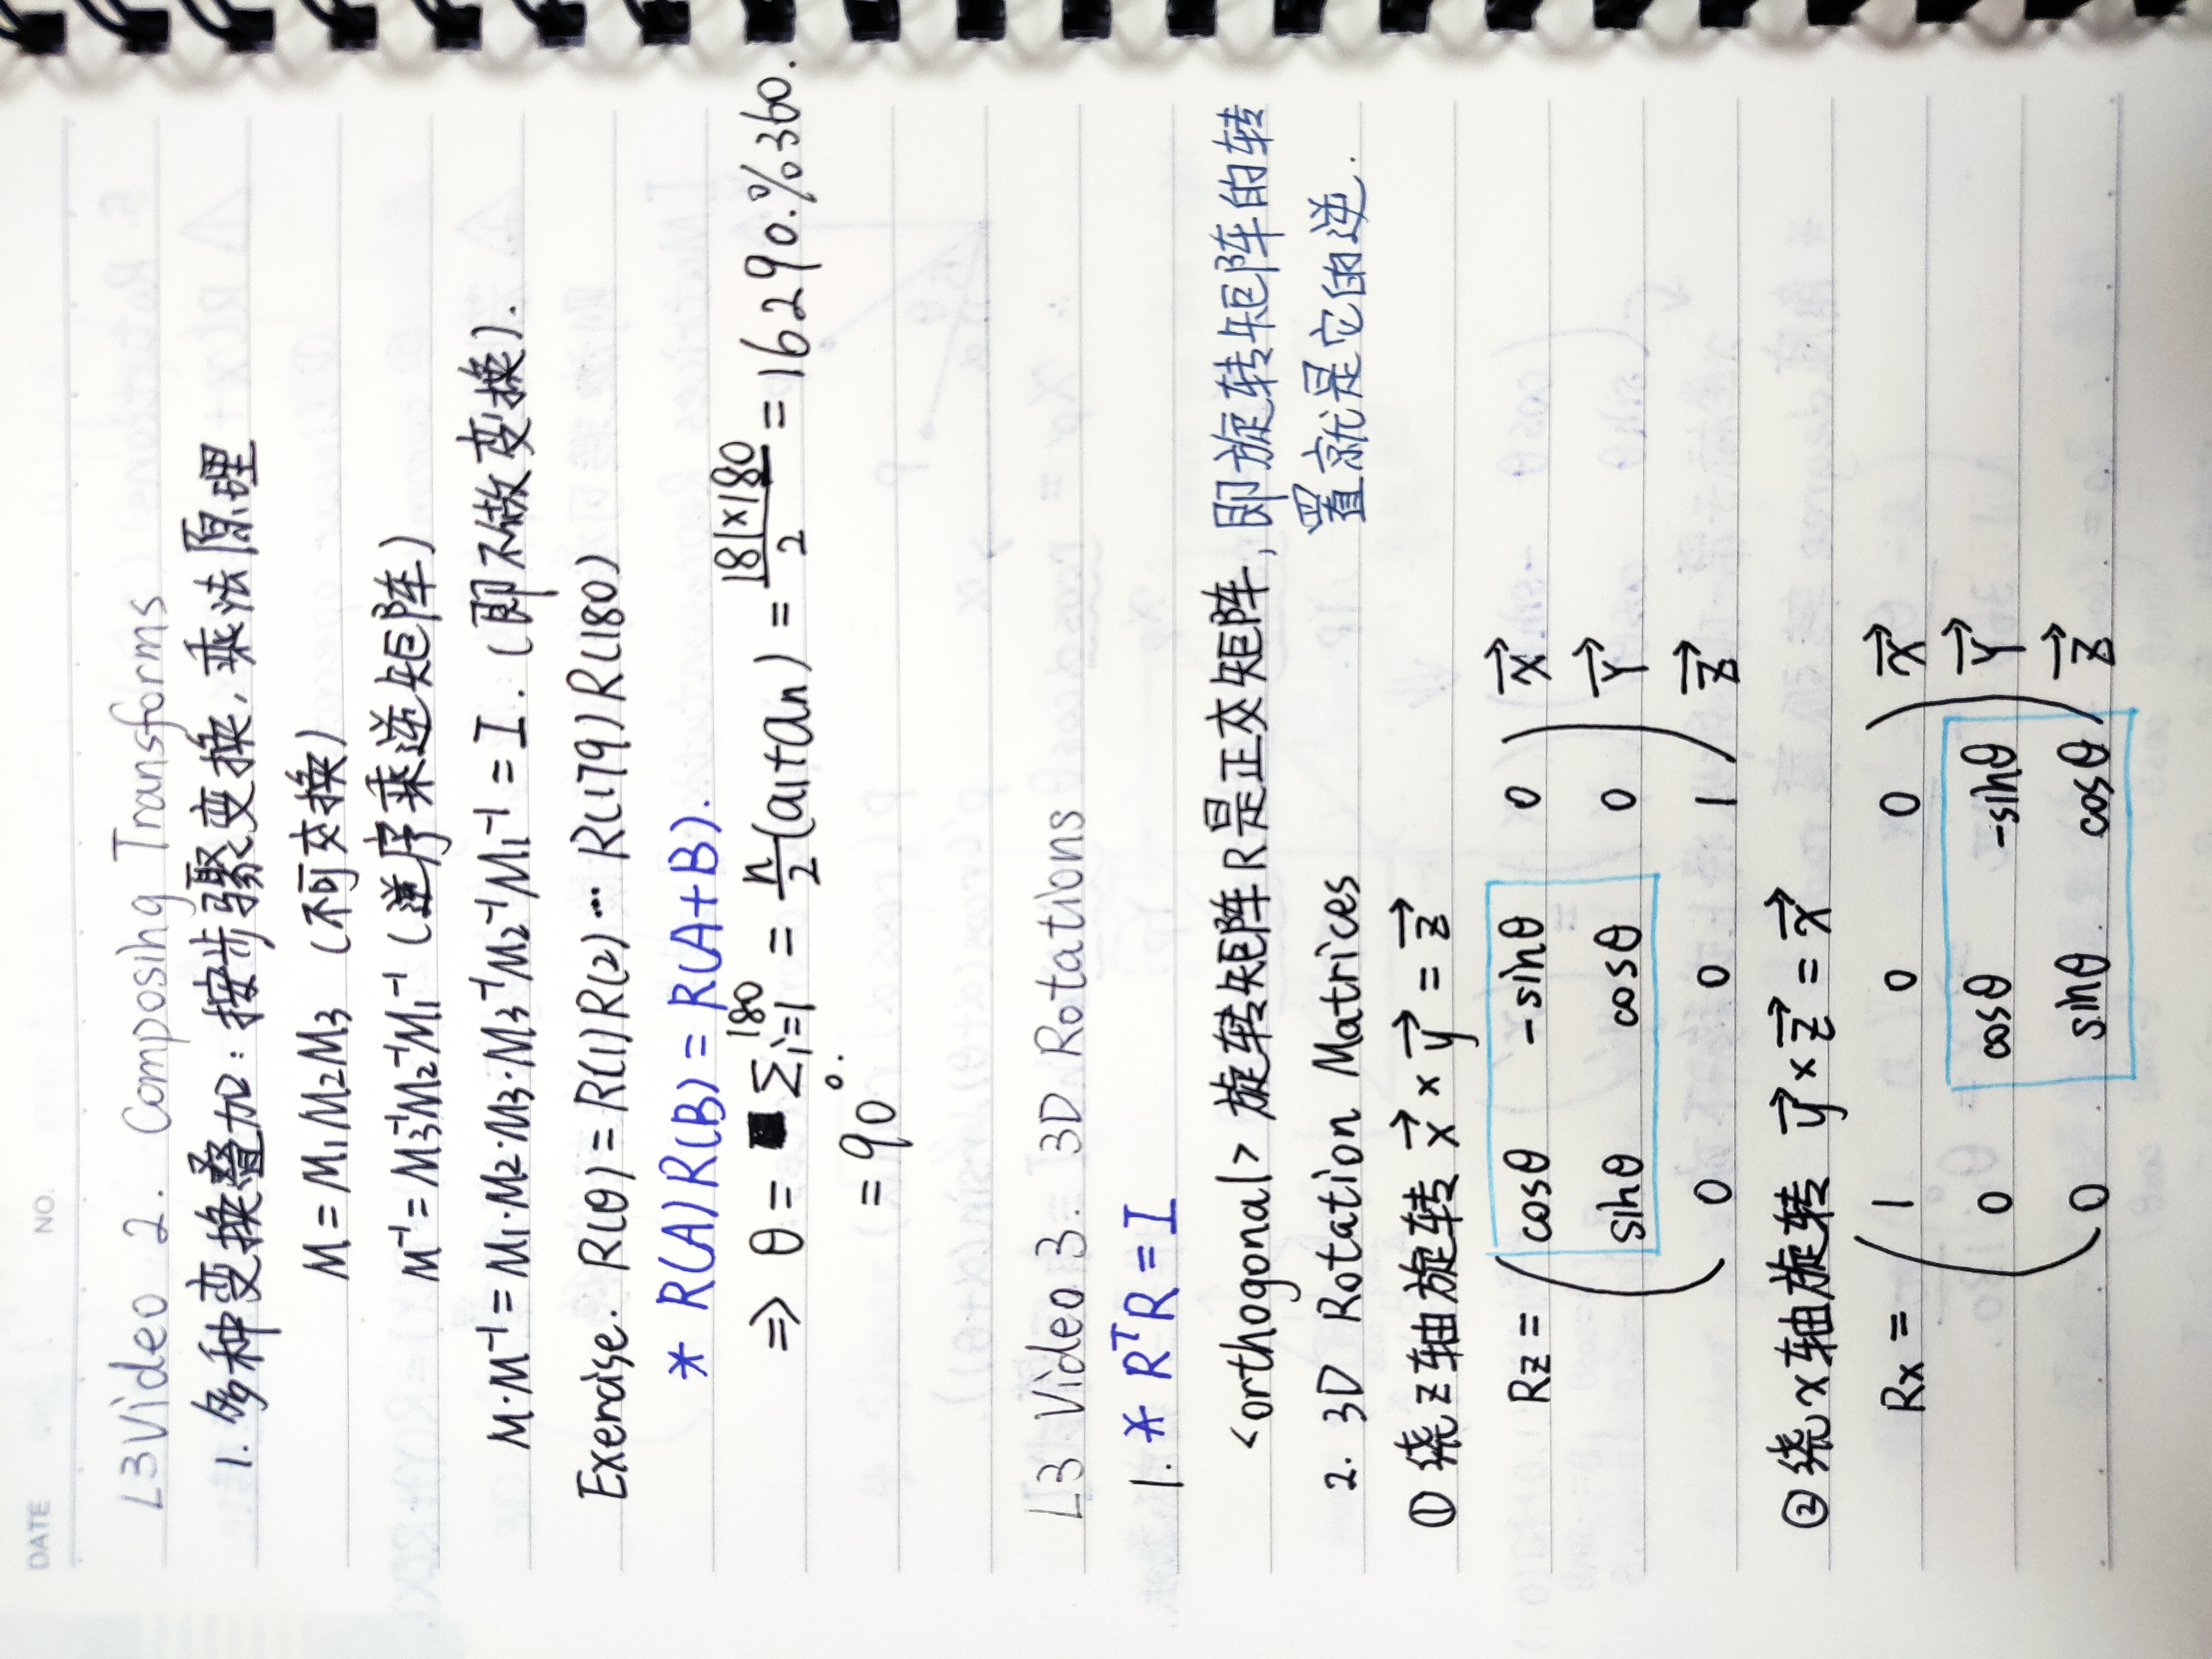 DATE NO.
L3 Video 2. Composing Transforms
1. 多种变换叠加：按步骤变换，乘法原理
M = M₁M₂M₃ （不可交换）
M⁻¹ = M₃⁻¹M₂⁻¹M₁⁻¹（逆序乘逆矩阵）
M·M⁻¹ = M₁·M₂·M₃·M₃⁻¹M₂⁻¹M₁⁻¹ = I.（即不做变换）.
Exercise. R(θ) = R(1)R(2)⋯ R(179)R(180)
* R(A)R(B) = R(A+B).
⇒ θ = Σᵢ₌₁¹⁸⁰ = n/2 (a₁+aₙ) = 181×180/2 = 16290.%360.
= 90°.
L3 Video 3. 3D Rotations
1. * RᵀR = I
<orthogonal> 旋转矩阵R是正交矩阵, 即旋转矩阵的转
置就是它的逆.
2. 3D Rotation Matrices
① 绕z轴旋转 x⃗ × y⃗ = z⃗
Rz = ( cosθ -sinθ 0 ) X⃗
sinθ cosθ 0 Y⃗
0 0 1 Z⃗
② 绕x轴旋转 y⃗ × z⃗ = x⃗
Rx = ( 1 0 0 ) X⃗
0 cosθ -sinθ Y⃗
0 sinθ cosθ Z⃗